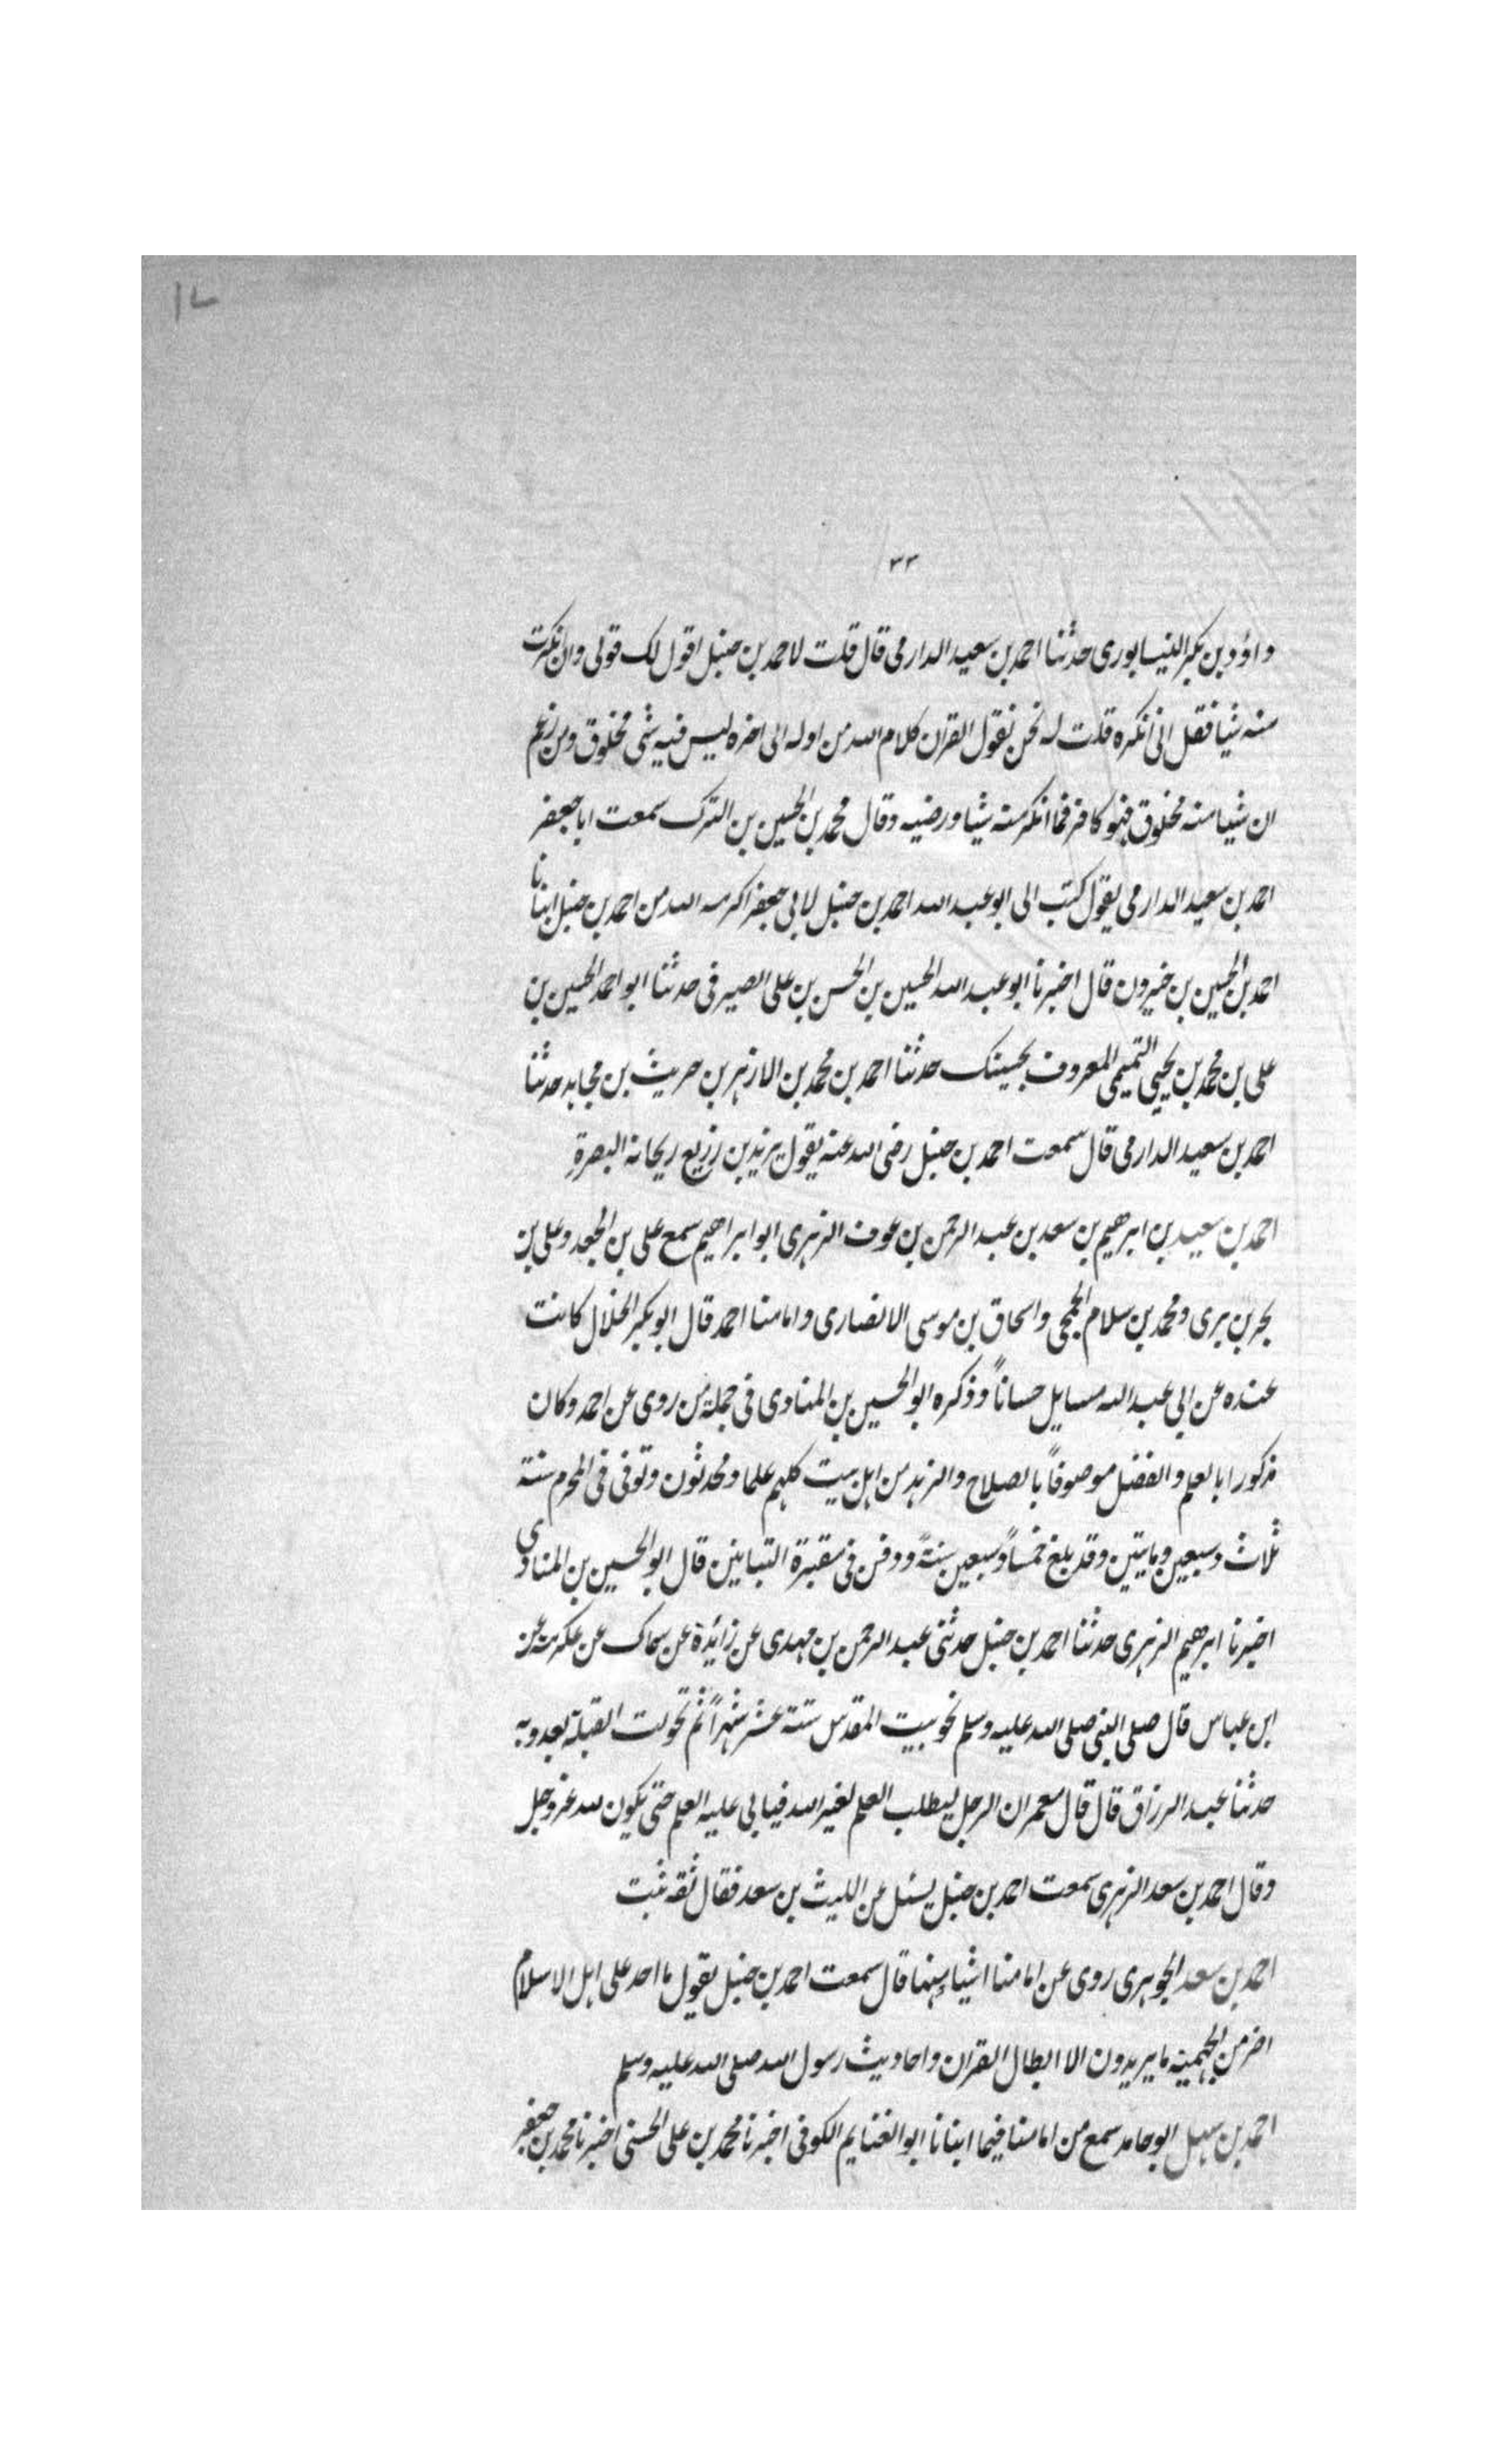 ١٧
٣٣
داؤد بن بكر النيسابوري حدثنا احمد بن سعيد الدارمي قال قلت لاحمد بن حنبل اقول لك قولي وان انكرت
منه شيا فقل اني انكره قلت له نحن نقول القران كلام الله من اوله الى اخره ليس فيه شي مخلوق ومن زعم
ان شيا منه مخلوق فهو كافر فما انكر منه شيا ورضيه وقال محمد بن الحسين بن الترك سمعت ابا جعفر
احمد بن سعيد الدارمي يقول كتب الى ابو عبد الله احمد بن حنبل لابي جعفر اكرمه الله من احمد بن حنبل انبانا
احمد بن الحسين بن خيرون قال اخبرنا ابو عبد الله الحسين بن الحسن بن على الصيرفى حدثنا ابو احمد الحسين بن
على بن محمد بن يحيى التميمى المعروف بحسينك حدثنا احمد بن محمد بن الازهر بن حريث بن مجاهد حدثنا
احمد بن سعيد الدارمى قال سمعت احمد بن حنبل رضى الله عنه يقول يزيد بن زريع ريحانة البصرة
احمد بن سعيد بن ابرهيم بن سعد بن عبد الرحمن بن عوف الزهرى ابو ابراهيم سمع على بن الجعد وعلى بن
بحر بن برى ومحمد بن سلام الجمحى واسحاق بن موسى الانصارى وامامنا احمد قال ابو بكر الخلال كانت
عنده عن ابى عبد الله مسايل حساناً وذكره ابو الحسين بن المنادى فى جملة من روى عن احمد وكان
مذكورا بالعلم والفضل موصوفاً بالصلاح والزهد من اهل بيت كلهم علما ومحدثون وتوفى فى المحرم سنة
ثلاث وسبعين وماىتين وقد بلغ خمساً وسبعين سنةً ودفن فى مقبرة التبانين قال ابو الحسين بن المنادى
اخبرنا ابرهيم الزهرى حدثنا احمد بن حنبل حدثنى عبد الرحمن بن مهدى عن زائدة عن سماك عن عكرمة عن
ابن عباس قال صلى النبى صلى الله عليه وسلم نحو بيت المقدس ستة عشر شهراً ثم تحولت القبلة بعد وبه
حدثنا عبد الرزاق قال قال معمر ان الرجل ليطلب العلم لغير الله فيابى عليه العلم حتى يكون لله عز وجل
وقال احمد بن سعد الزهرى سمعت احمد بن حنبل يسئل عن الليث بن سعد فقال ثقه ثبت
احمد بن سعد الجوهرى روى عن امامنا اشياء منها قال سمعت احمد بن حنبل يقول ما احد على اهل الاسلام
اضر من الجهمية ما يريدون الا ابطال القران واحاديث رسول الله صلى الله عليه وسلم
احمد بن سهل ابو حامد سمع من امامنا فيما انبانا ابو الغنايم الكوفى اخبرنا محمد بن على الحسنى اخبرنا محمد بن جعفر